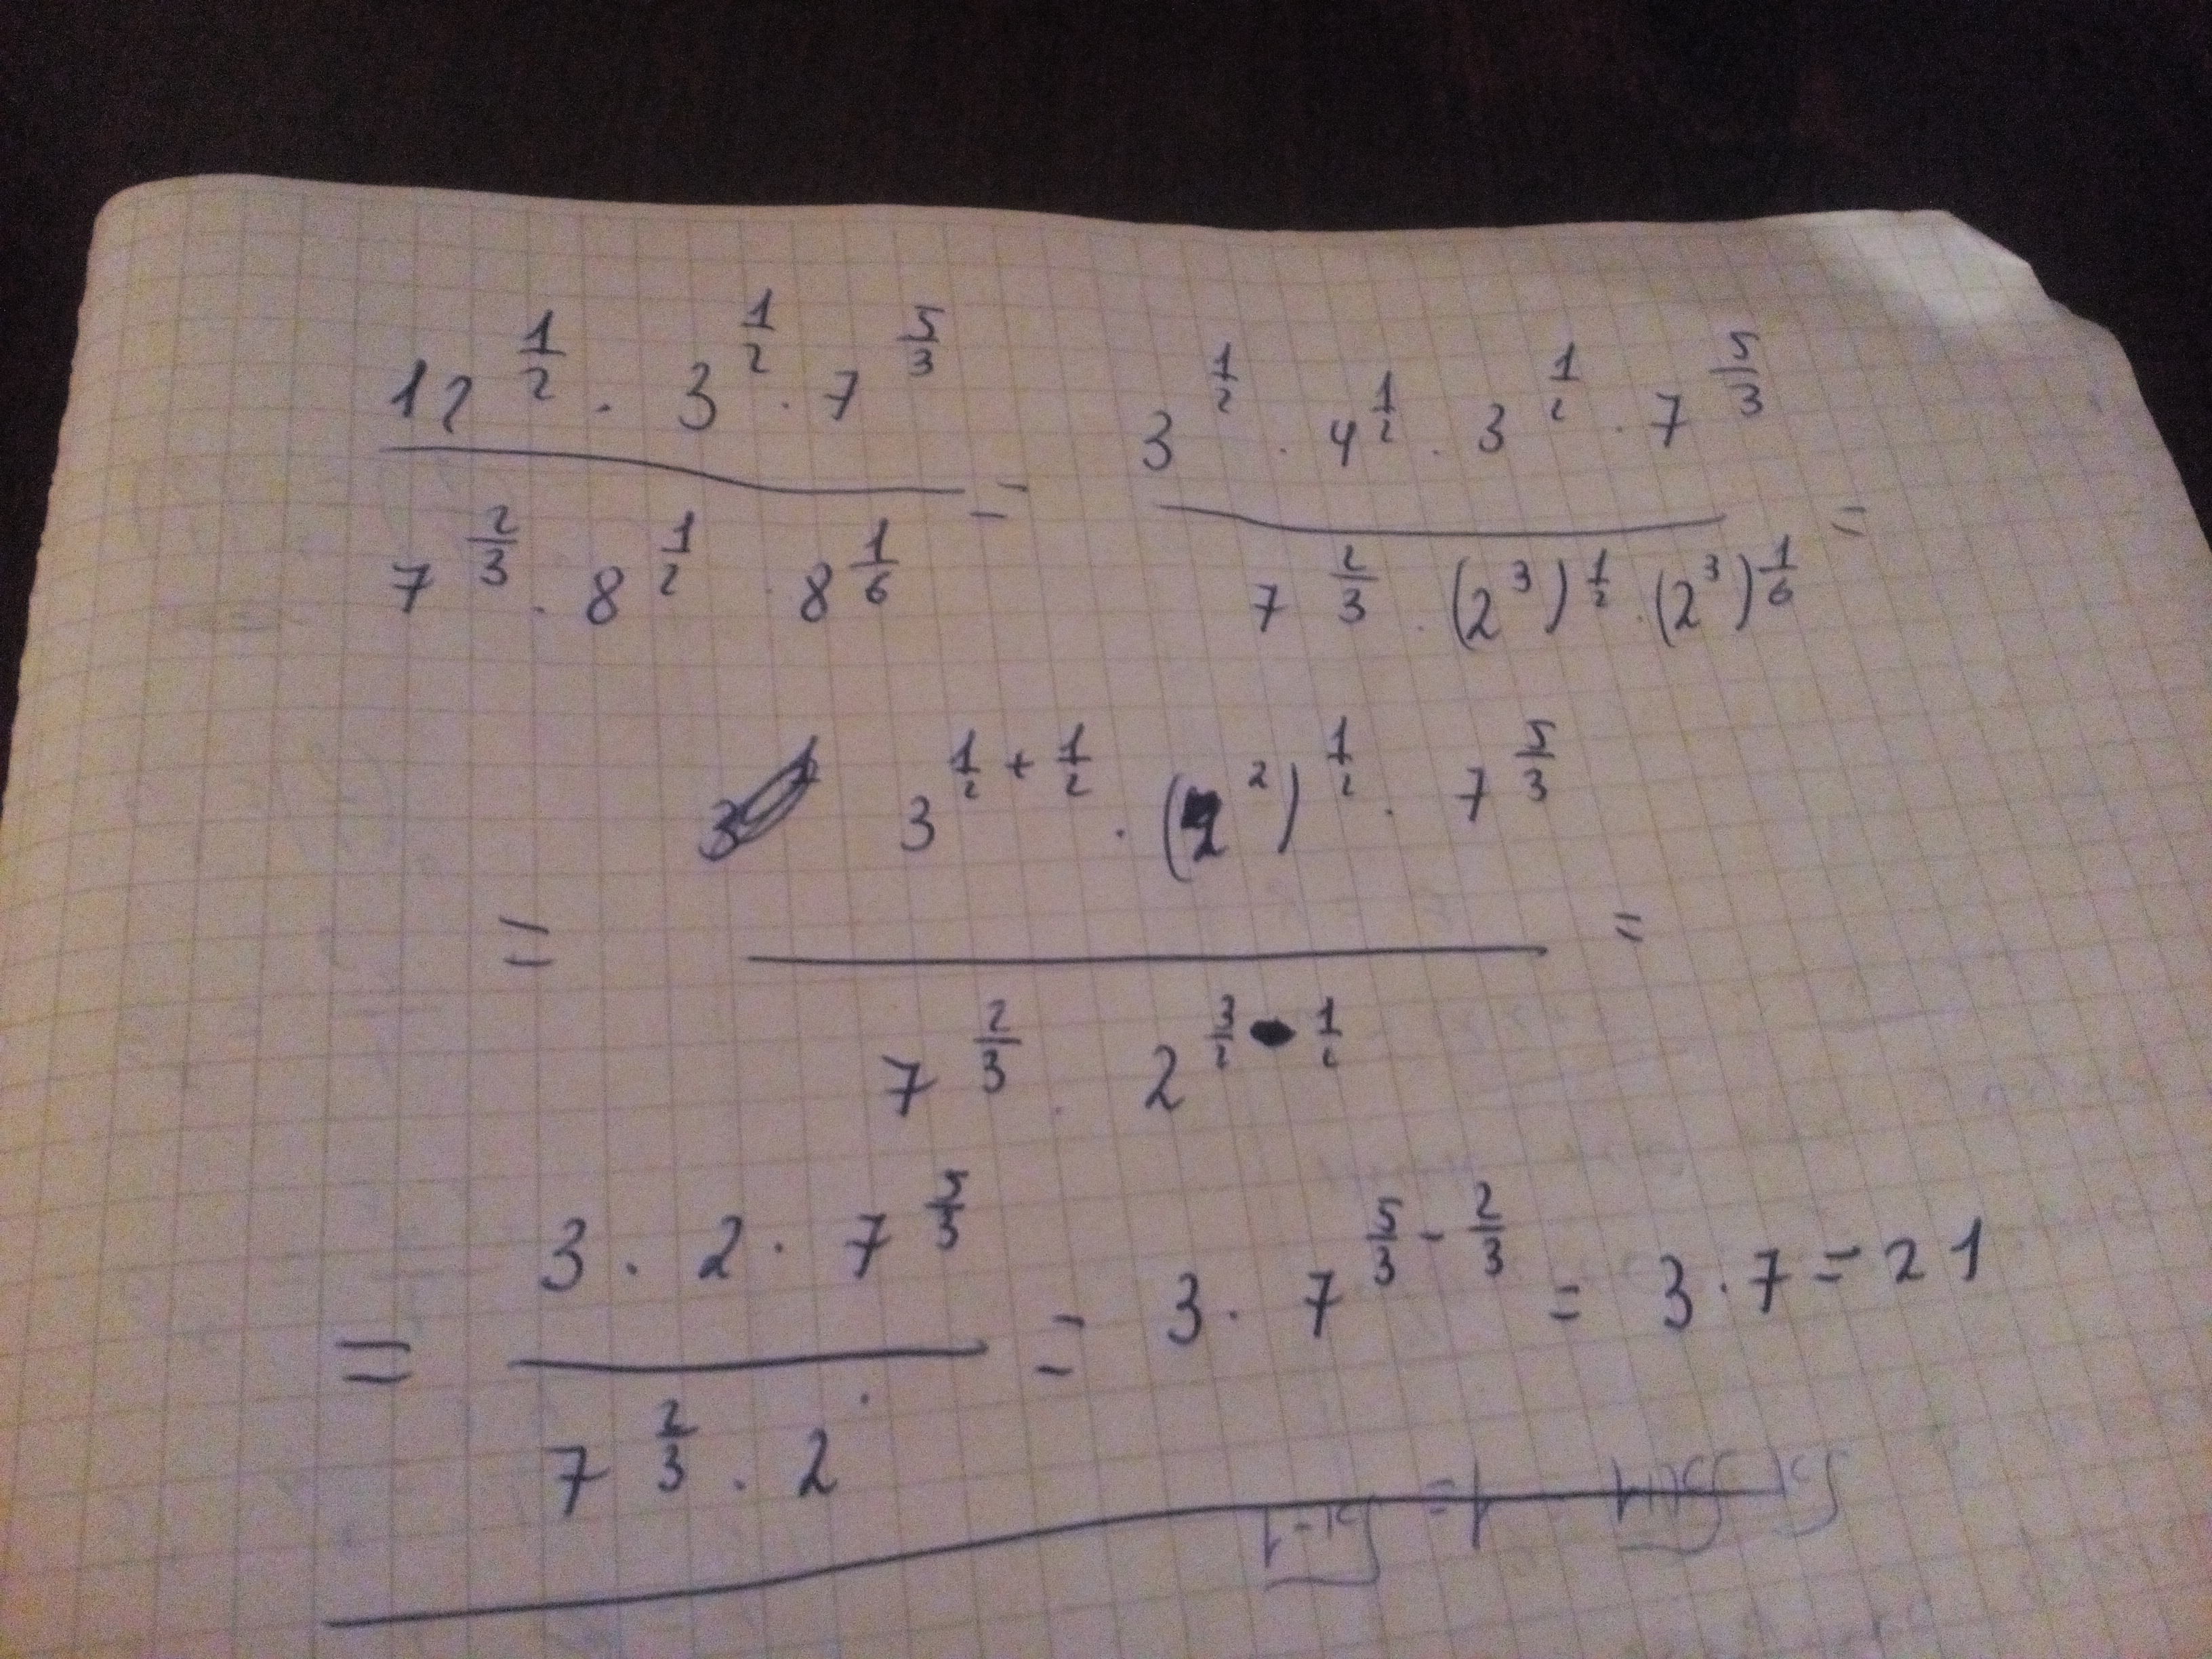 12^(1/2) · 3^(1/2) · 7^(5/3) / 7^(2/3) · 8^(1/2) · 8^(1/6) = 3^(1/2) · 4^(1/2) · 3^(1/2) · 7^(5/3) / 7^(2/3) · (2^3)^(1/2) · (2^3)^(1/6) =
= 3^(1/2 + 1/2) · (2^2)^(1/2) · 7^(5/3) / 7^(2/3) · 2^(3/2 - 1/2) =
= 3 · 2 · 7^(5/3) / 7^(2/3) · 2 = 3 · 7^(5/3 - 2/3) = 3 · 7 = 21